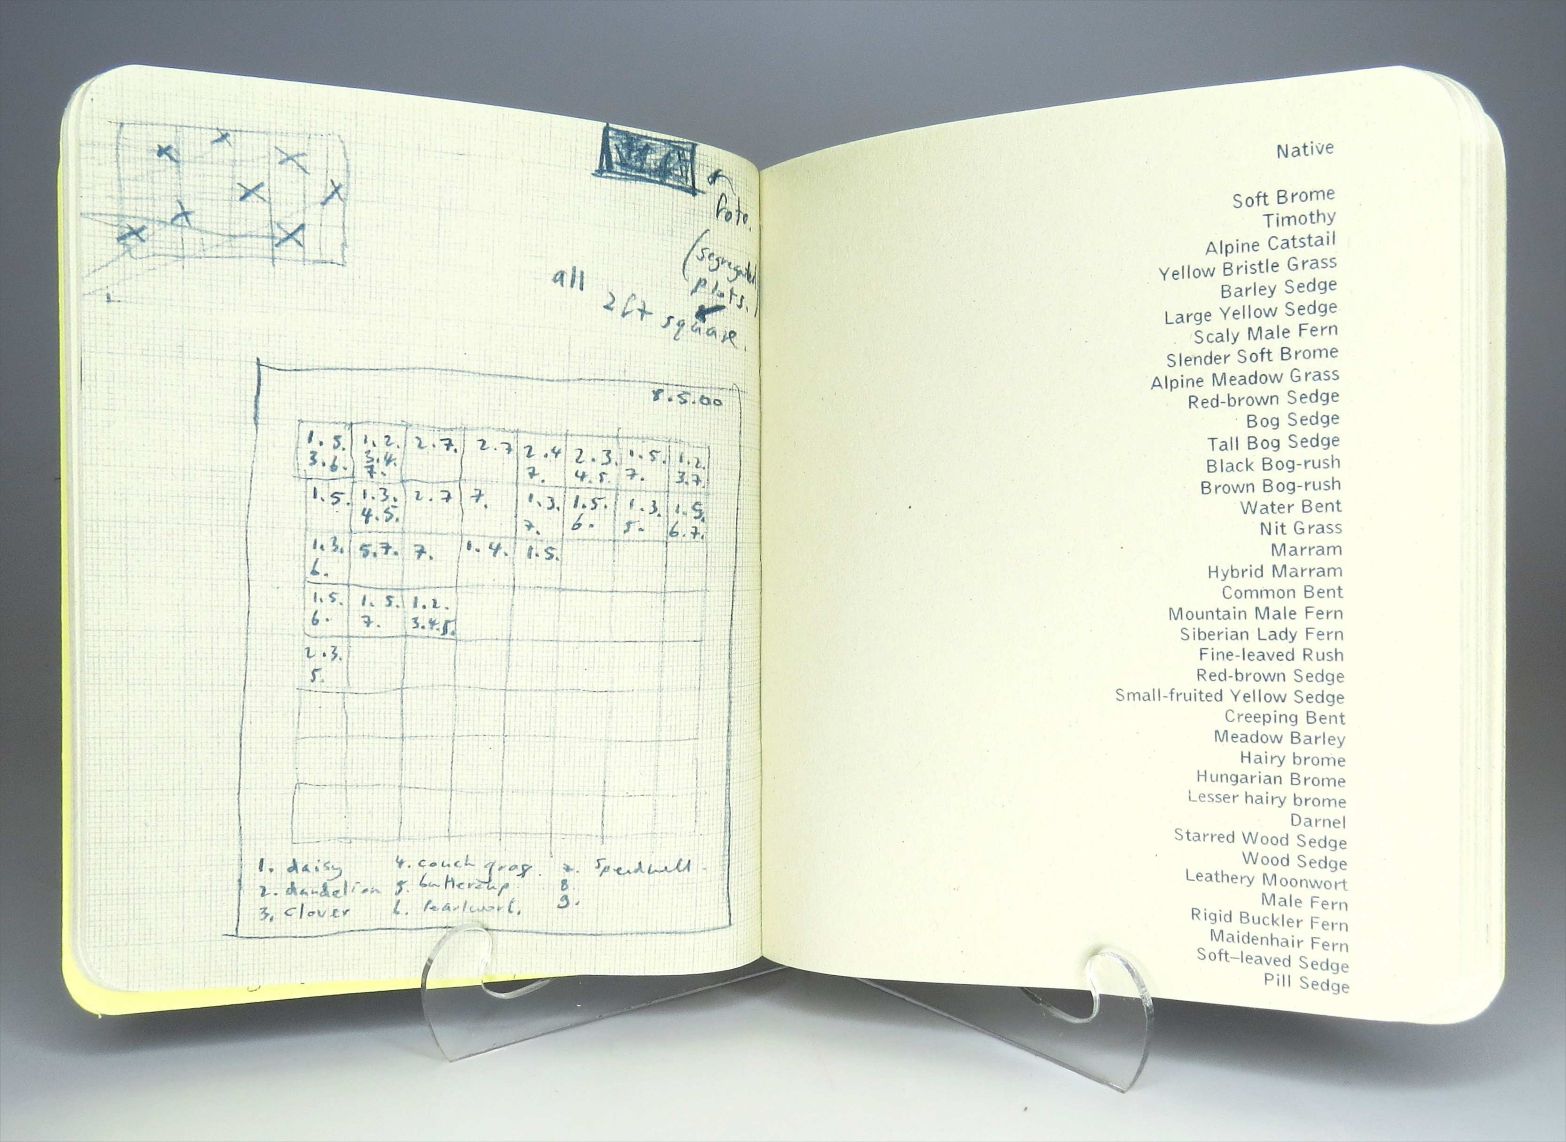 foto.
(segregated
plots.)
all
2ft square.
8.5.00
1.5. 1.2. 2.7. 2.7 2.4 2.3. 1.5. 1.2.
3.6. 3.4. 7. 4.5. 7. 3.7.
7.
1.5. 1.3. 2.7 7. 1.3. 1.5. 1.3. 1.5.
4.5. 7. 6. 5. 6.7.
1.3. 5.7. 7. 1.4. 1.5.
6.
1.5. 1.5. 1.2.
6. 7. 3.4.5.
2.3.
5.
1. daisy 4. couch gras. 7. Speedwell.
2. dandelion 5. buttercup 8.
3. clover 6. Pearlwort. 9.
Native
Soft Brome
Timothy
Alpine Catstail
Yellow Bristle Grass
Barley Sedge
Large Yellow Sedge
Scaly Male Fern
Slender Soft Brome
Alpine Meadow Grass
Red-brown Sedge
Bog Sedge
Tall Bog Sedge
Black Bog-rush
Brown Bog-rush
Water Bent
Nit Grass
Marram
Hybrid Marram
Common Bent
Mountain Male Fern
Siberian Lady Fern
Fine-leaved Rush
Red-brown Sedge
Small-fruited Yellow Sedge
Creeping Bent
Meadow Barley
Hairy brome
Hungarian Brome
Lesser hairy brome
Darnel
Starred Wood Sedge
Wood Sedge
Leathery Moonwort
Male Fern
Rigid Buckler Fern
Maidenhair Fern
Soft–leaved Sedge
Pill Sedge